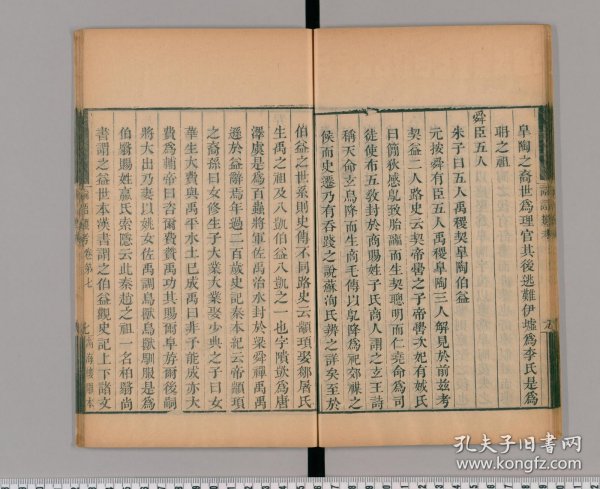 皐陶之裔世爲理官其後逃難伊墟爲李氏是爲
耼之祖
舜臣五人
朱子曰五人禹稷契皐陶伯益
元按舜有臣五人禹稷皐陶三人解見於前兹考
契益二人路史云契帝嚳之子帝嚳次妃有娀氏
曰簡狄感鳦致胎疈而生契聰明而仁堯命爲司
徒使布五敎封於商賜姓子氏商人謂之玄王詩
稱天命玄鳥降而生商毛傳以鳦降爲祀郊禖之
候而史遷乃有吞踐之說蘇洵氏辨之詳矣至於
伯益之世系則史傳不同路史云顓頊娶鄒屠氏
生禹之祖及八凱伯益八凱之一也字隤敳爲唐
澤虞是爲百蟲將軍佐禹治水封於梁舜禪禹禹
遜於益辭焉年過二百歲史記秦本紀云帝顓頊
之裔孫曰女修生子大業大業娶少典之子曰女
華生大費與禹平水土已成禹曰非予能成亦大
費爲輔帝曰咨爾費贊禹功其賜爾皁斿爾後嗣
將大出乃妻以姚女佐禹調鳥獸鳥獸馴服是爲
伯翳賜姓嬴氏索隱云此秦趙之祖一名柏翳尚
書謂之伯益世本漢書謂之伯益觀史記上下諸文
論語類考 卷第七
湖海樓雕本
孔夫子旧书网
www.kongfz.com